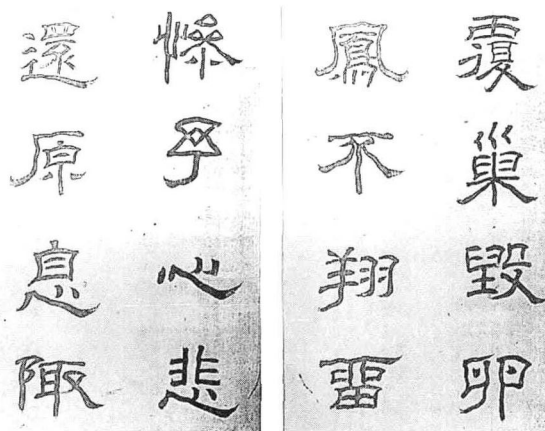 覆巢毀卵
鳳不翔留
慘予心悲
還原息陬